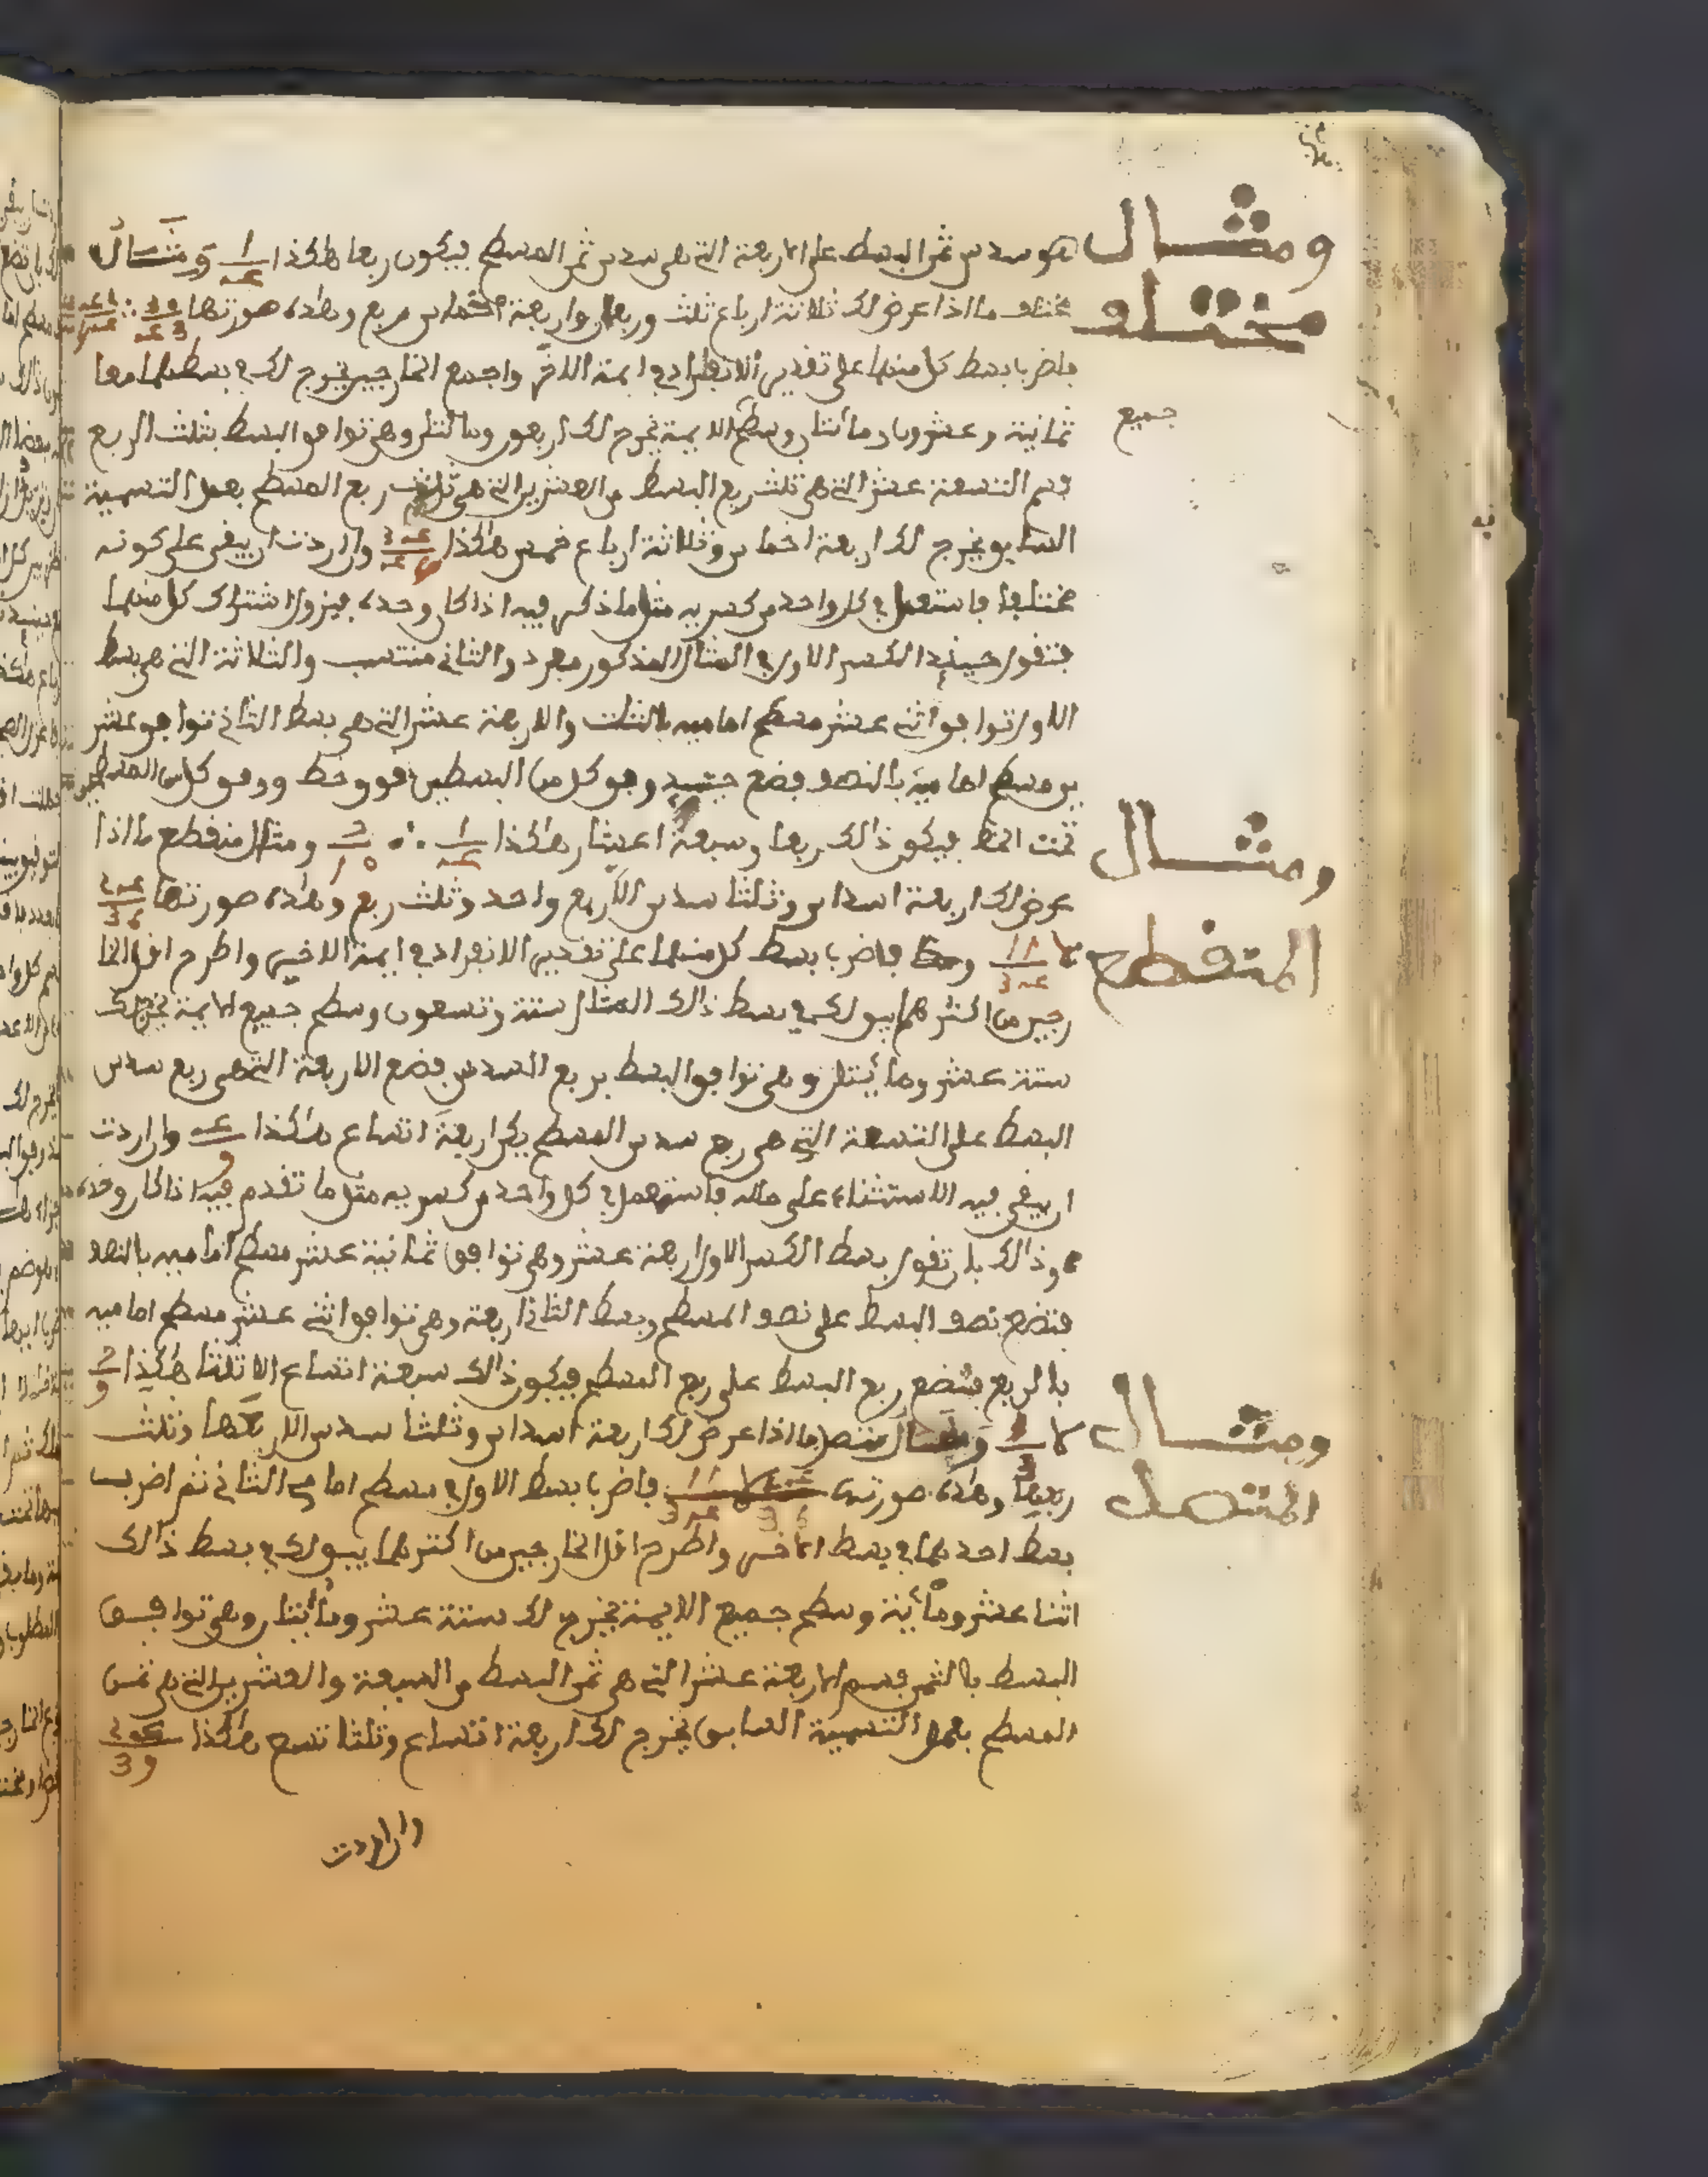 ومثال
مختلف
هو سدس ثمن البسط على الاربعة التي هي سدس ثمن المسطح فيكون ربعا هكذا 1/4 ومثال
مختلف ما اذا عرض لك ثلاثة ارباع ثلث وربعان واربعة اخماس مربع وهذه صورتها
فاضرب بسط كل منهما على تقدير الانفراد في ايمة الاخر واجمع الخارجين يخرج لك في بسطهما معا
جميع
ثمانية وعشرون ومائتان وسطح الايمة يخرج لك اربعون ومائتان وهي توافق البسط بثلث الربع
فسم التسعة عشر التي هي ثلث ربع البسط من العشرين التي هي ثلث ربع المسطح بعمل التسمية
السابق يخرج لك اربعة اخماس وثلاثة ارباع خمس هكذا وان اردت ان يبقى على كونه
مختلفا فاستعمل في كل واحد من كسريه مثل ما ذكر فيه اذا كان وحده فيزول اشتراك كل منهما
فتقول حينئذ الكسر الاول في المثال المذكور مفرد والثاني منتسب والثلاثة التي هي بسط
الاول توافق اثني عشر مسطح اماميه بالثلث والاربعة عشر التي هي بسط الثاني توافق عشر
ين مسطح اماميه بالنصف فضع حينئذ وفق كل من البسطين فوق خط ووفق كل من المسطحين
تحت الخط فيكون ذالك ربعا وسبعة اعشار هكذا 1/4 ∴ 7/10 ومثال منقطع ما اذا
ومثال
المنقطع
عرض لك اربعة اسداس وثلثا سدس الا ربع واحد وثلث ربع وهذه صورتها
فاضرب بسط كل منهما على تقدير الانفراد في ايمة الاخير واطرح اقل الخا
رجين من اكثرهما يبق لك في بسط ذالك المثال ستة وتسعون وسطح جميع الايمة يخرج لك
ستة عشر ومائتان وهي توافق البسط بربع السدس فضع الاربعة التي هي ربع سدس
البسط على التسعة التي هي ربع سدس المسطح يكن اربعة اتساع هكذا 4/9 وان اردت
ان يبقى فيه الاستثناء على حاله فاستعمل في كل واحد من كسريه مثل ما تقدم فيه اذا كان وحده
وذالك بان تقول بسط الكسر الاول اربعة عشر وهي توافق ثمانية عشر مسطح اماميه بالنصف
فتضع نصف البسط على نصف المسطح وبسط الثاني اربعة وهي توافق اثني عشر مسطح اماميه
بالربع فتضع ربع البسط على ربع المسطح فيكون ذالك سبعة اتساع الا ثلثا هكذا 7/9
ومثال
المتصل
لا 1/3 ومثال متصل ما اذا عرض لك اربعة اسداس وثلثا سدس الا ربعها وثلث
ربعها وهذه صورته فاضرب بسط الاول في مسطح امامي الثاني ثم اضرب
بسط احدهما في بسط الاخر واطرح اقل الخارجين من اكثرهما يبق لك في بسط ذالك
اثنا عشر ومائة وسطح جميع الايمة يخرج لك ستة عشر ومائتان وهي توافق
البسط بالثمن فسم الاربعة عشر التي هي ثمن البسط من السبعة والعشرين التي هي ثمن
المسطح بعمل التسمية السابق يخرج لك اربعة اتساع وثلثا تسع هكذا
وان اردت